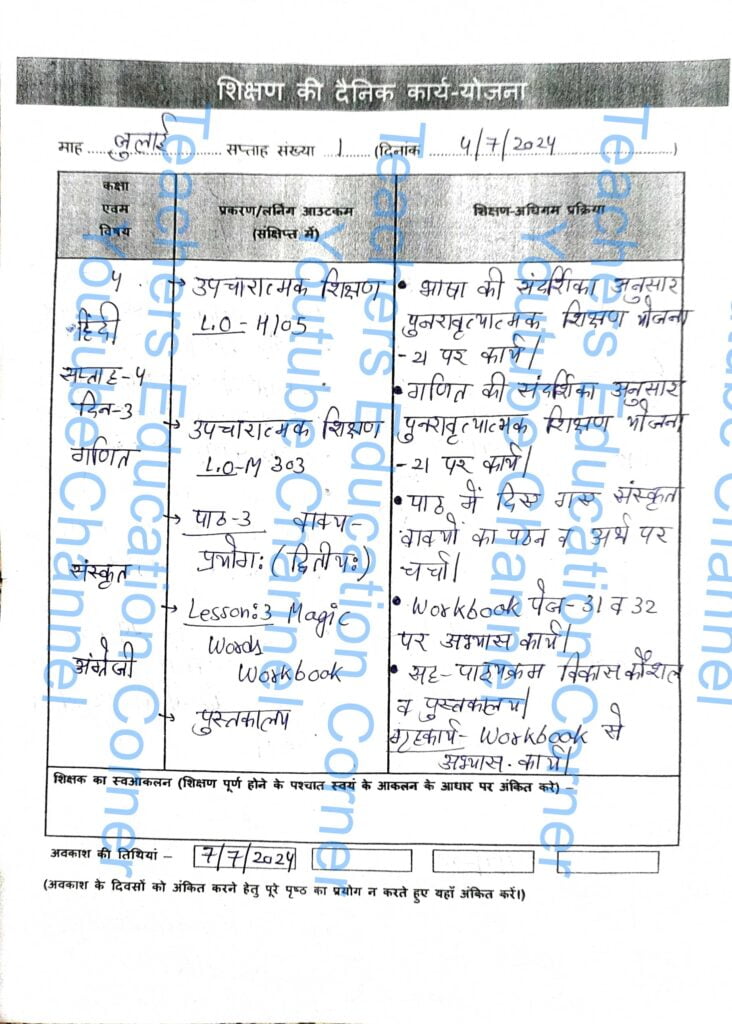 शिक्षण की दैनिक कार्य-योजना
माह ... जुलाई ... सप्ताह संख्या ..1.. (दिनांक ... 4/7/2024 ...)
कक्षा एवम विषय
प्रकरण/लर्निंग आउटकम (संक्षिप्त में)
शिक्षण-अधिगम प्रक्रिया
4
हिंदी
सप्ताह-4
दिन-3
गणित
संस्कृत
अंग्रेजी
→ उपचारात्मक शिक्षण
L.O-H105
→ उपचारात्मक शिक्षण
L.O-M 303
→ पाठ-3 वाक्य-
प्रयोगः (द्वितीयः)
→ Lesson:3 Magic
Words
Workbook
→ पुस्तकालय
• भाषा की संदर्शिका अनुसार
पुनरावृत्यात्मक शिक्षण योजना
-21 पर कार्य।
• गणित की संदर्शिका अनुसार
पुनरावृत्यात्मक शिक्षण योजना
-21 पर कार्य।
• पाठ में दिए गए संस्कृत
वाक्यों का पठन व अर्थ पर
चर्चा।
• Workbook पेज-31 व 32
पर अभ्यास कार्य।
• सह-पाठ्यक्रम विकास कौशल
व पुस्तकालय।
गृहकार्य- Workbook से
अभ्यास कार्य।
शिक्षक का स्वआकलन (शिक्षण पूर्ण होने के पश्चात स्वयं के आकलन के आधार पर अंकित करे) –
अवकाश की तिथियां – 7/7/2024
(अवकाश के दिवसों को अंकित करने हेतु पूरे पृष्ठ का प्रयोग न करते हुए यहाँ अंकित करें।)
Teachers Education Corner
Youtube Channel
Teachers Education Corner
Youtube Channel
Teachers Education Corner
Youtube Channel